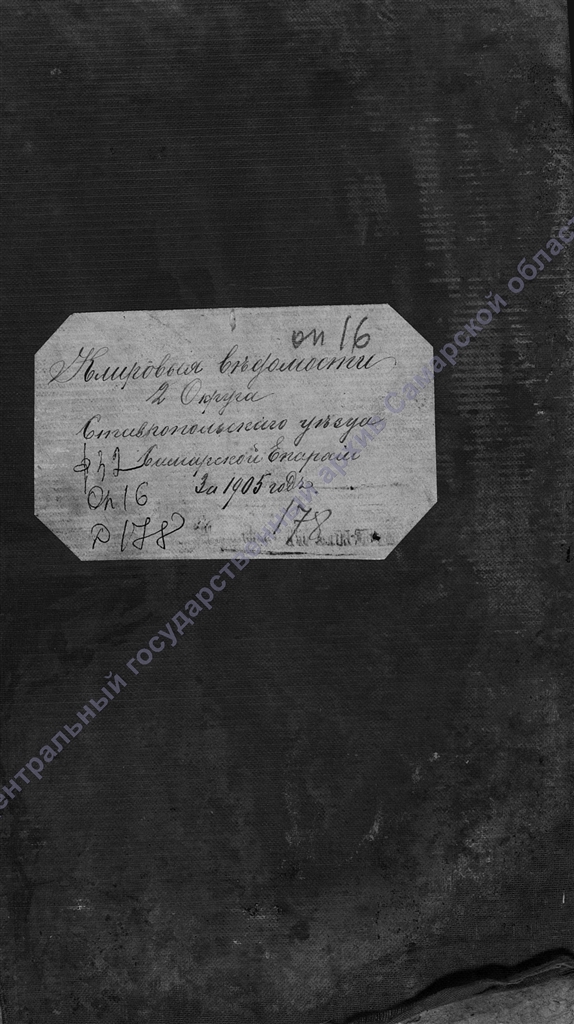 оп 16
Клировыя вѣдомости
2 Округа
Ставропольскаго уѣзда
ф 32 Самарской Епархіи
Оп 16 За 1905 годъ.
D 178 178
Центральный государственный архив Самарской области